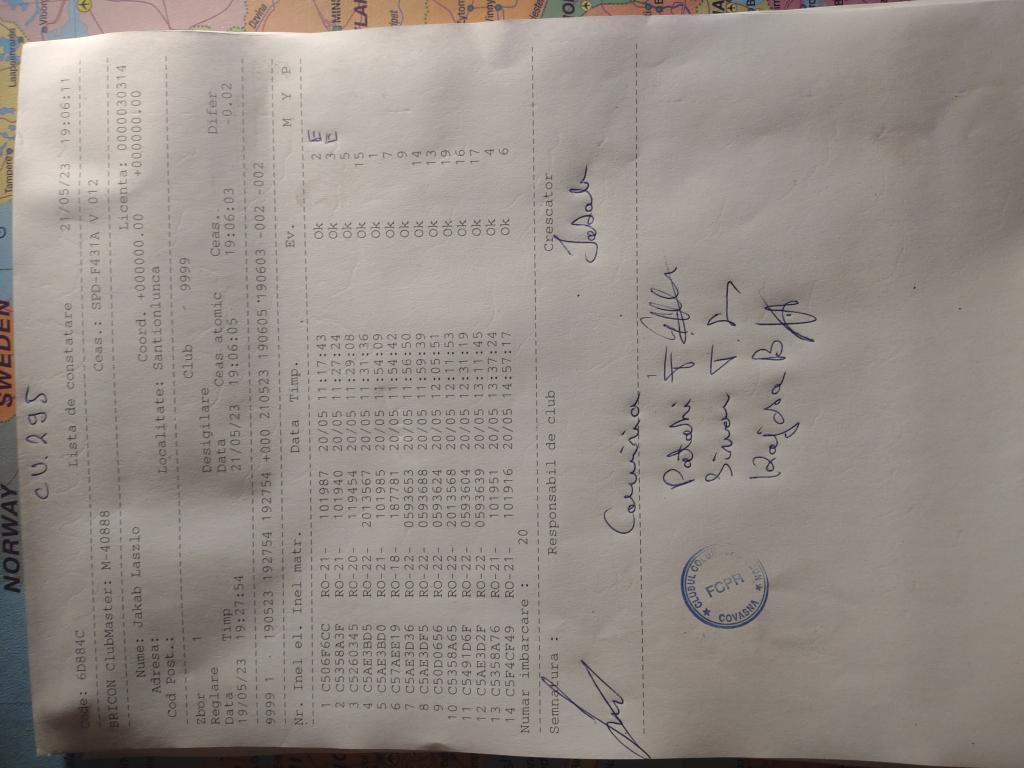 NORWAY
SWEDEN
CU. 295
Code: 6D884C Lista de constatare 21/05/23 19:06:11
BRICON ClubMaster: M-40888 Ceas.: SPD-F431A V 012
Nume: Jakab Laszlo Licenta: 0000030314
Adresa: Coord. +000000.00 +0000000:00
Cod Post.: Localitate: Santionlunca
Club - 9999
Zbor 1
Reglare Desigilare
Data Timp Data Ceas atomic Ceas. Difer
19/05/23 19:27:54 21/05/23 19:06:05 19:06:03 -0.02
9999 1 190523 192754 192754 +000 210523 190605*190603 -002 -002
Nr. Inel el. Inel matr. Data Timp. Ev. M Y P
1 C506F6CC RO-21- 101987 20/05 11:17:43 Ok 2 E
2 C5358A3F RO-21 101940 20/05 11:27:34 Ok 3 E
3 C5260345 RO-20- 119454 20/05 11:29:08 Ok 5
4 C5AE3BD5 RO-22- 2013567 20/05 11:31:36 Ok 15
5 C5AE3BD0 RO-21- 101985 20/05 11:54:09 Ok 1
6 C57AEE19 RO-18- 187781 20/05 11:54:42 Ok 7
7 C5AE3D36 RO-22- 0593653 20/05 11:56:50 Ok 9
8 C5AE3DF5 RO-22- 0593688 20/05 11:59:39 Ok 14
9 C50D0656 RO-22- 0593624 20/05 12:05:51 Ok 13
10 C5358A65 RO-22- 2013568 20/05 12:11:53 Ok 19
11 C5491D6F RO-22- 0593604 20/05 12:31:19 Ok 16
12 C5AE3D2F RO-22- 0593639 20/05 13:11:45 Ok 17
13 C5358A76 RO-21- 101951 20/05 13:37:24 Ok 4
14 C5F4CF49 RO-21- 101916 20/05 14:57:17 Ok 6
Numar imbarcare : 20
Semnatura : Responsabil de club Crescator
Jakab
FCPR
COVASNA